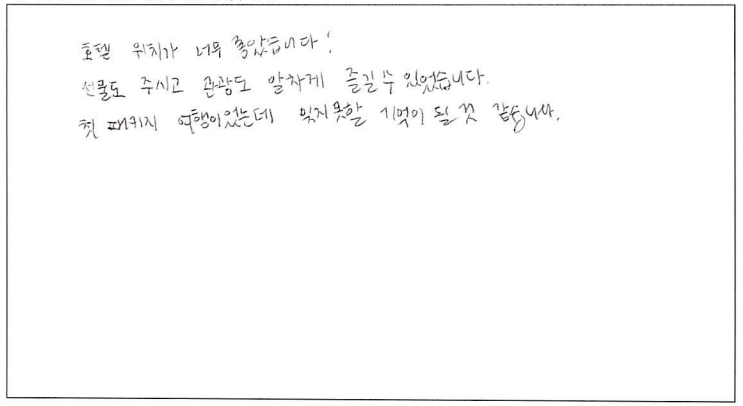 호텔 위치가 너무 좋았습니다!
선물도 주시고 관광도 알차게 즐길 수 있었습니다.
첫 패키지 여행이었는데 잊지 못할 기억이 될 것 같습니다.